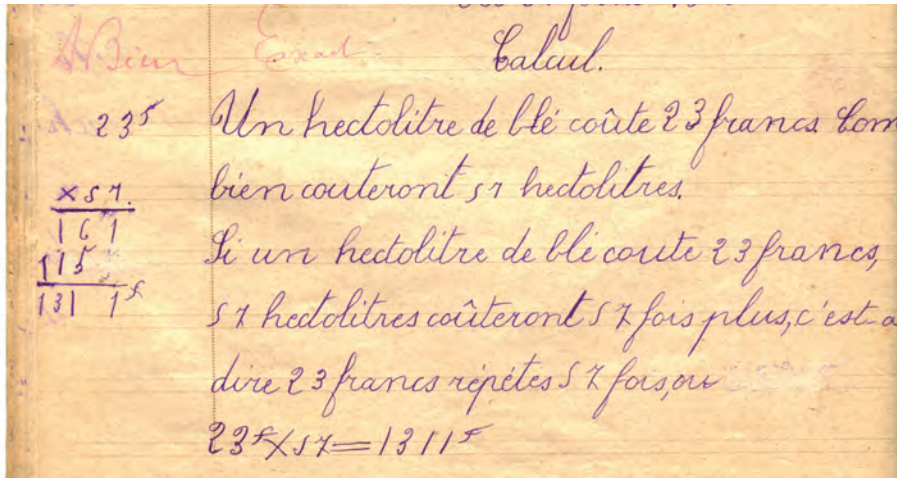 Bien Exact
Calcul.
23f Un hectolitre de blé coûte 23 francs. Com
x57. bien couteront 57 hectolitres.
161
Si un hectolitre de blé coute 23 francs,
115
131 1f
57 hectolitres coûteront 57 fois plus, c'est-a
dire 23 francs répétes 57 fois, ou
23f x 57 = 1311f